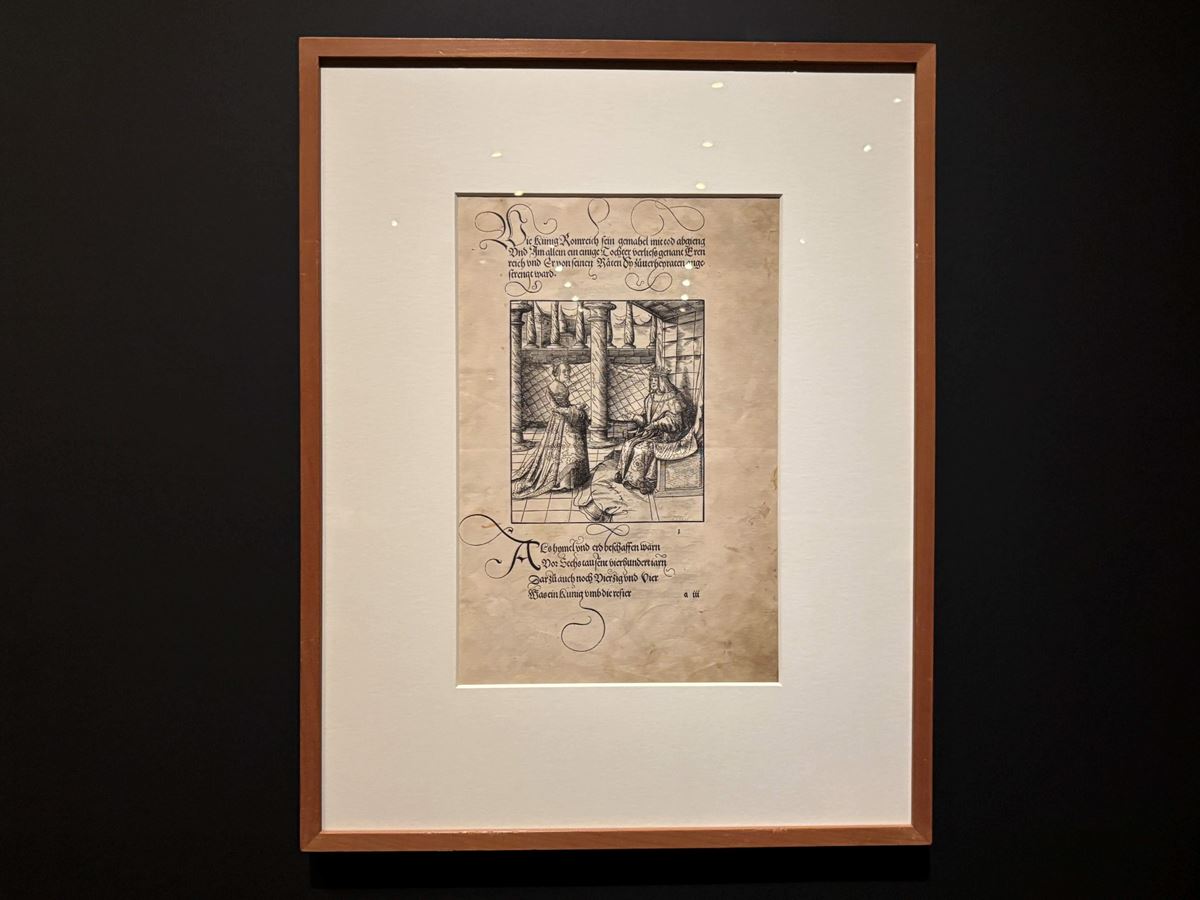 Wie Künig Romreich sein gemahel mit tod abgieng
Vnd Im allein ein einige Tochter verließ genant Eren
reich vnd Er von seinen Räten Sy zůuerheyraten ange-
strengt ward.
1
Als hymel vnd erd beschaffen warn
Vor Sechs tausent vierhundert iarn
Dar zů auch noch Vierzig vnd Vier
Was ein Kunig vmb die refier
a iii